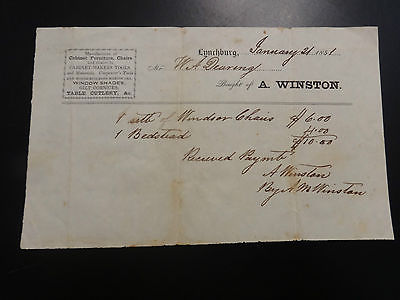 Manufacturer of
Cabinet Furniture, Chairs
CABINET-MAKERS TOOLS,
and Materials, Carpenter's Tools
WINDOW SHADES,
GILT CORNICES,
TABLE CUTLERY, &c.
Lynchburg, January 21 1851
Mr W. A. Dearing
Bought of A. WINSTON.
1 sett of Windsor Chairs $6.00
1 Bedstead 4.00
$10.00
Received Paymt
A Winston
By A M Winston